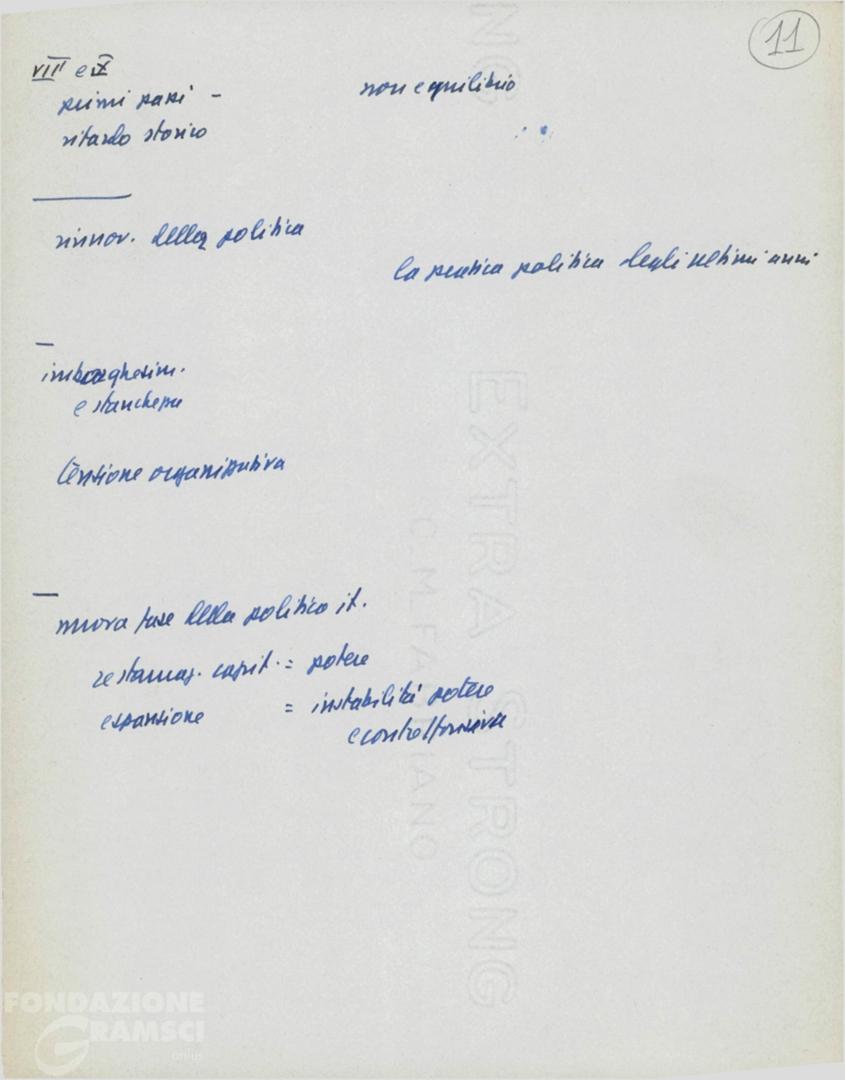 11
VIII e IX
primi passi -
non equilibrio
ritardo storico
rinnov. della politica
la pratica politica degli ultimi anni
imborghesim.
e stanchezza
tensione organizzativa
nuova fase della politica it.
restauraz. capit. = potere
espansione = instabilità potere
e controffensiva
EXTRA STRONG
C.M. FABRIANO
FONDAZIONE
GRAMSCI
onlus